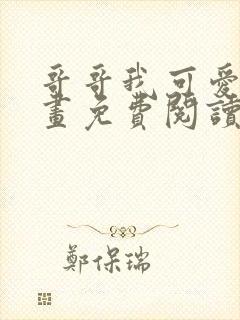 哥哥我可愛
畫免費閱讀
鄭保瑞